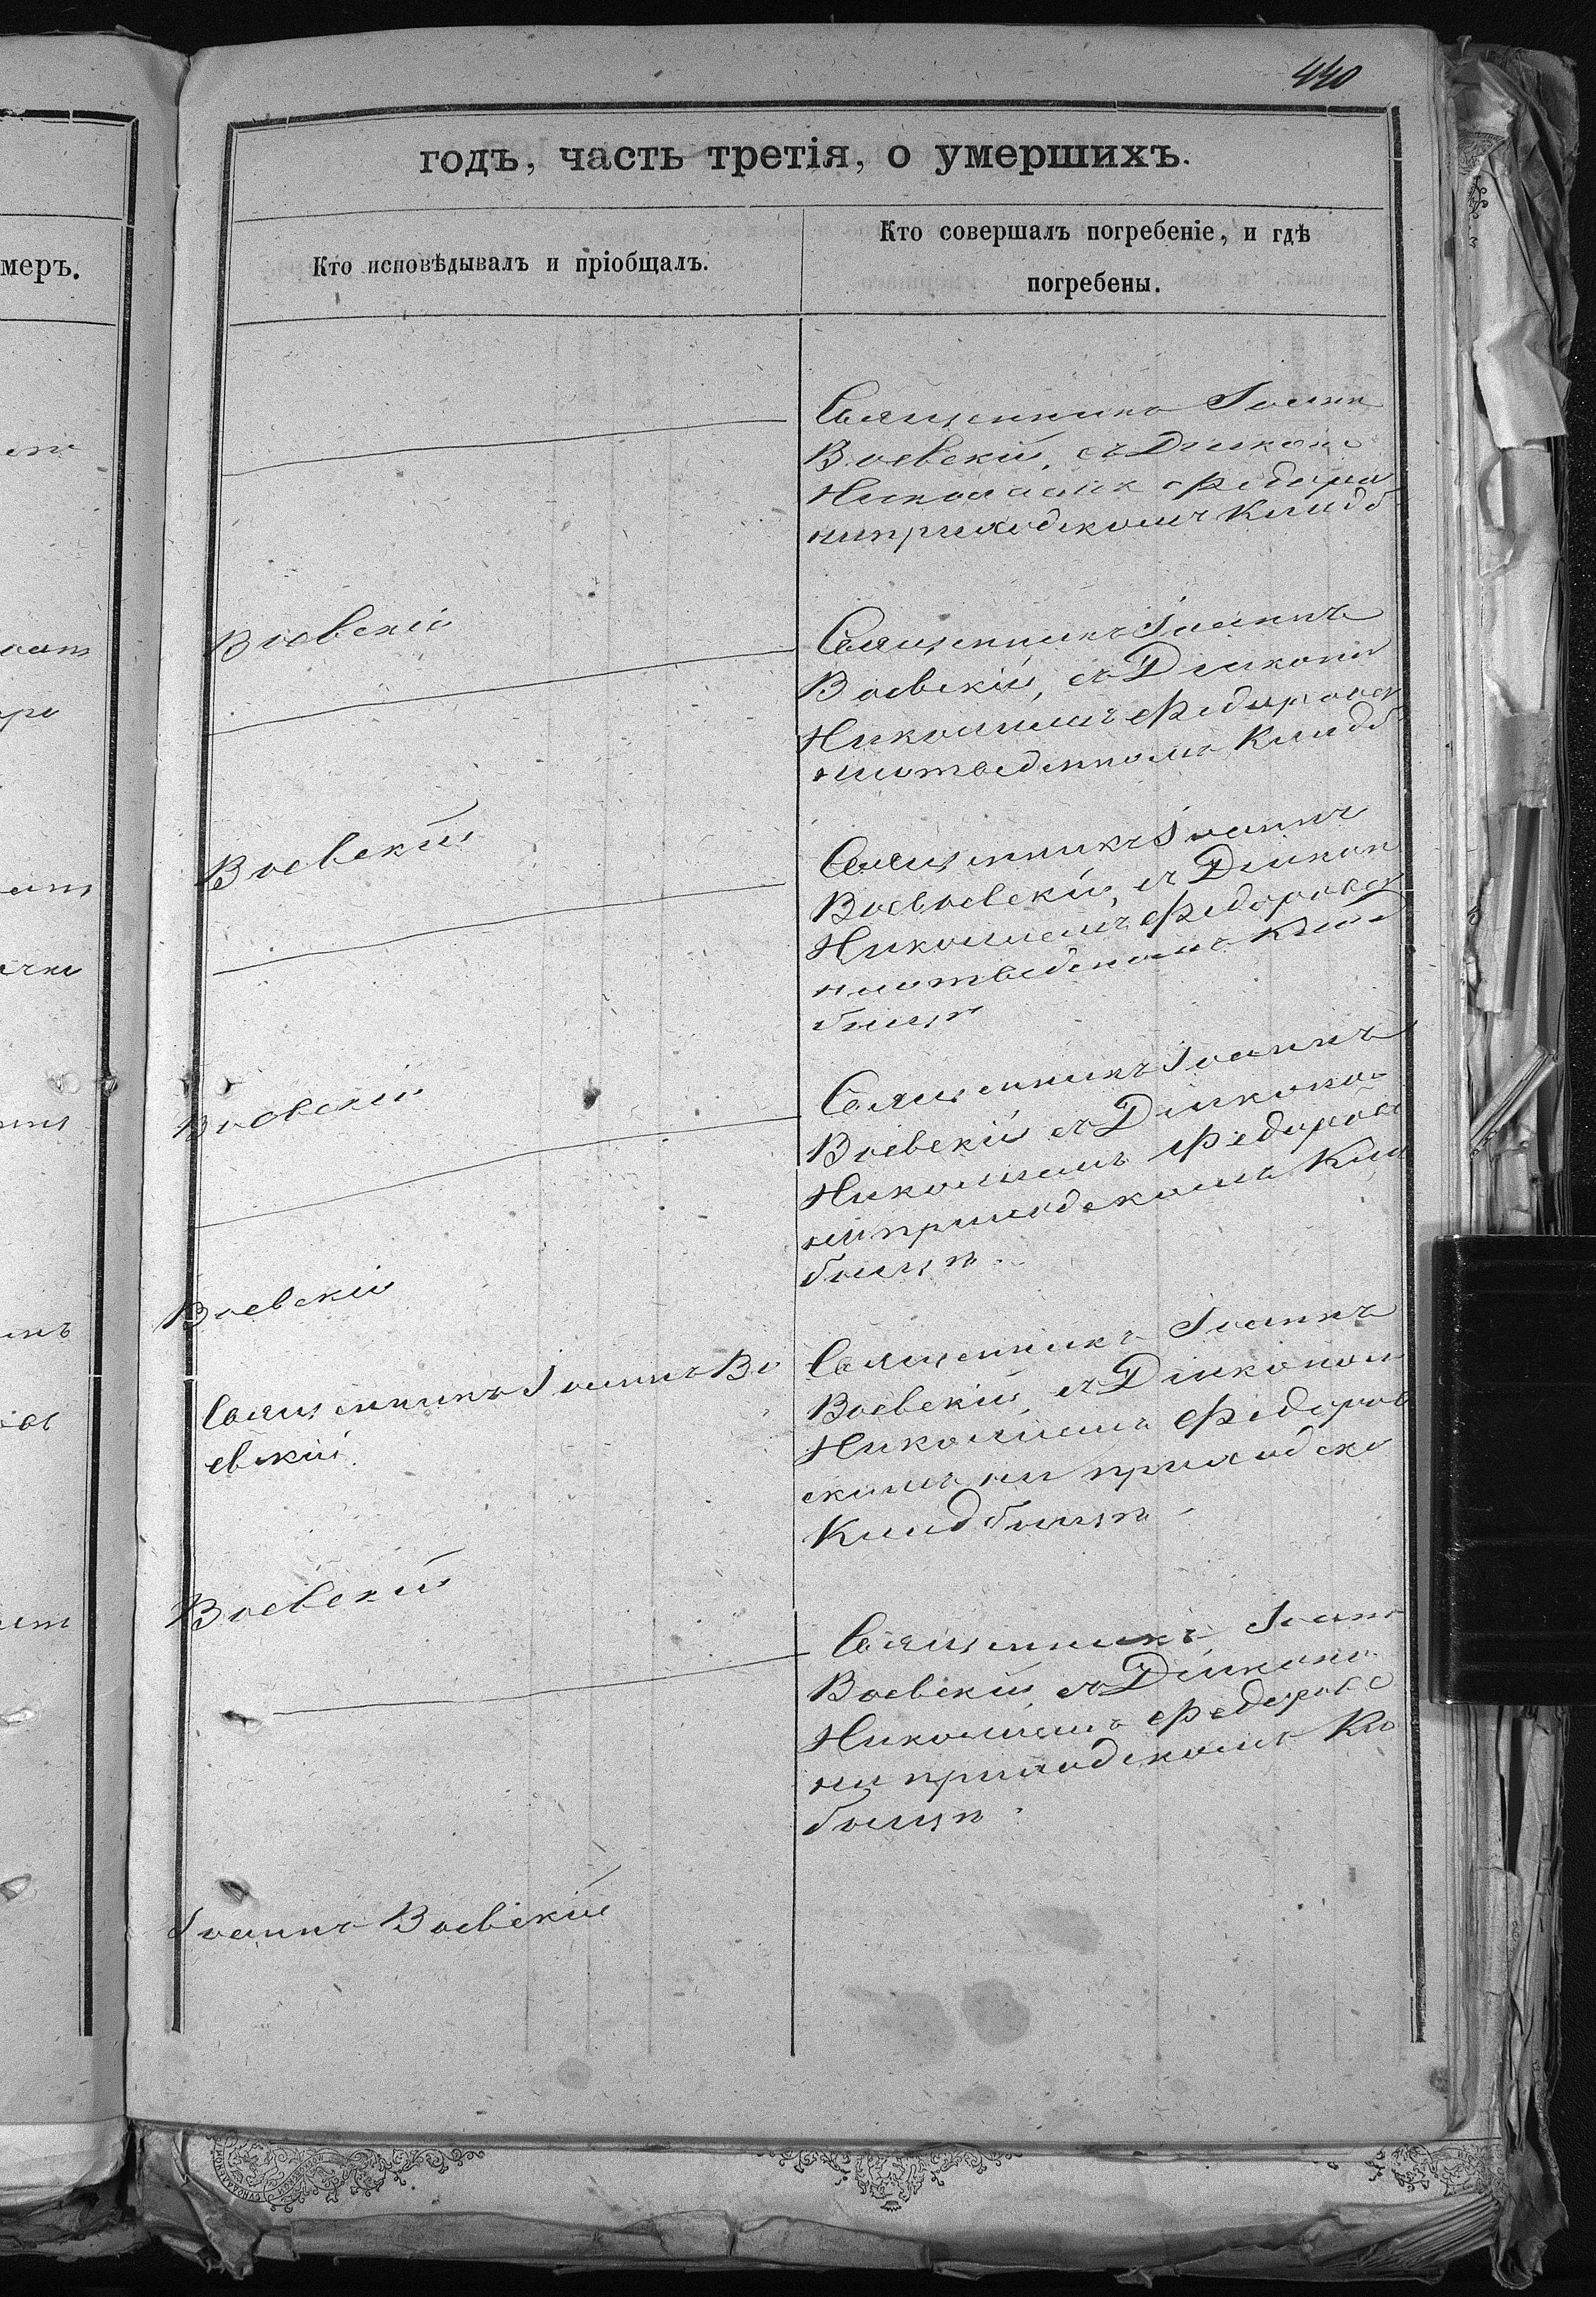 440
годъ, часть третія, о умершихъ.
меръ.
Кто исповѣдывалъ и пріобщалъ.
Кто совершалъ погребеніе, и гдѣ
погребены.
Священникъ Іоанн
Воевскій, съ Диконо
Николаемъ Федоров
на приходскомъ Кладб
Воевскій
Священникъ Іоаннъ
Воевскій, съ Диконо
Николаемъ Федоровск
на отведенномъ Кладб
Воевскій
Священникъ Іоаннъ
Воевоевскій, съ Диакон
Николаемъ Федоровск
на отведеномъ Клад
бищѣ
Воевскій
Священникъ Іоаннъ
Воевскій съ Диконо
Николаемъ Федоровс
на приходскомъ Кла
бищѣ.
Воевскій
Священникъ Іоаннъ Во
евскій.
Священникъ Іоаннъ
Воевскій, съ Диконом
Николаемъ Федоров
скимъ на приходско
Кладбищѣ
Воевскій
Священникъ Іоан
Воевскій, съ Диконо
Николаемъ Федоровс
на приходскомъ Кл
бищѣ.
Іоаннъ Воевскій